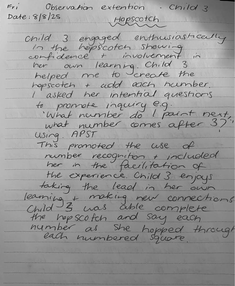 Fri Observation extention - Child 3
Date: 8/8/25
Hopscotch
Child 3 engaged enthusiastically
in the hopscotch showing
confidence + involvement in
her own learning. Child 3
helped me to create the
hopscotch + add each number.
I asked her intential questions
to promote inquiry e.g
'What number do I paint next,
what number comes after 3?'
using APST
This promoted the use of
number recogniton + included
her in the facilitation of
the experience Child 3 enjoys
taking the lead in her own
learning + making new connections
Child 3 was able complete
the hopscotch and say each
number as she hopped through
each numbered square.